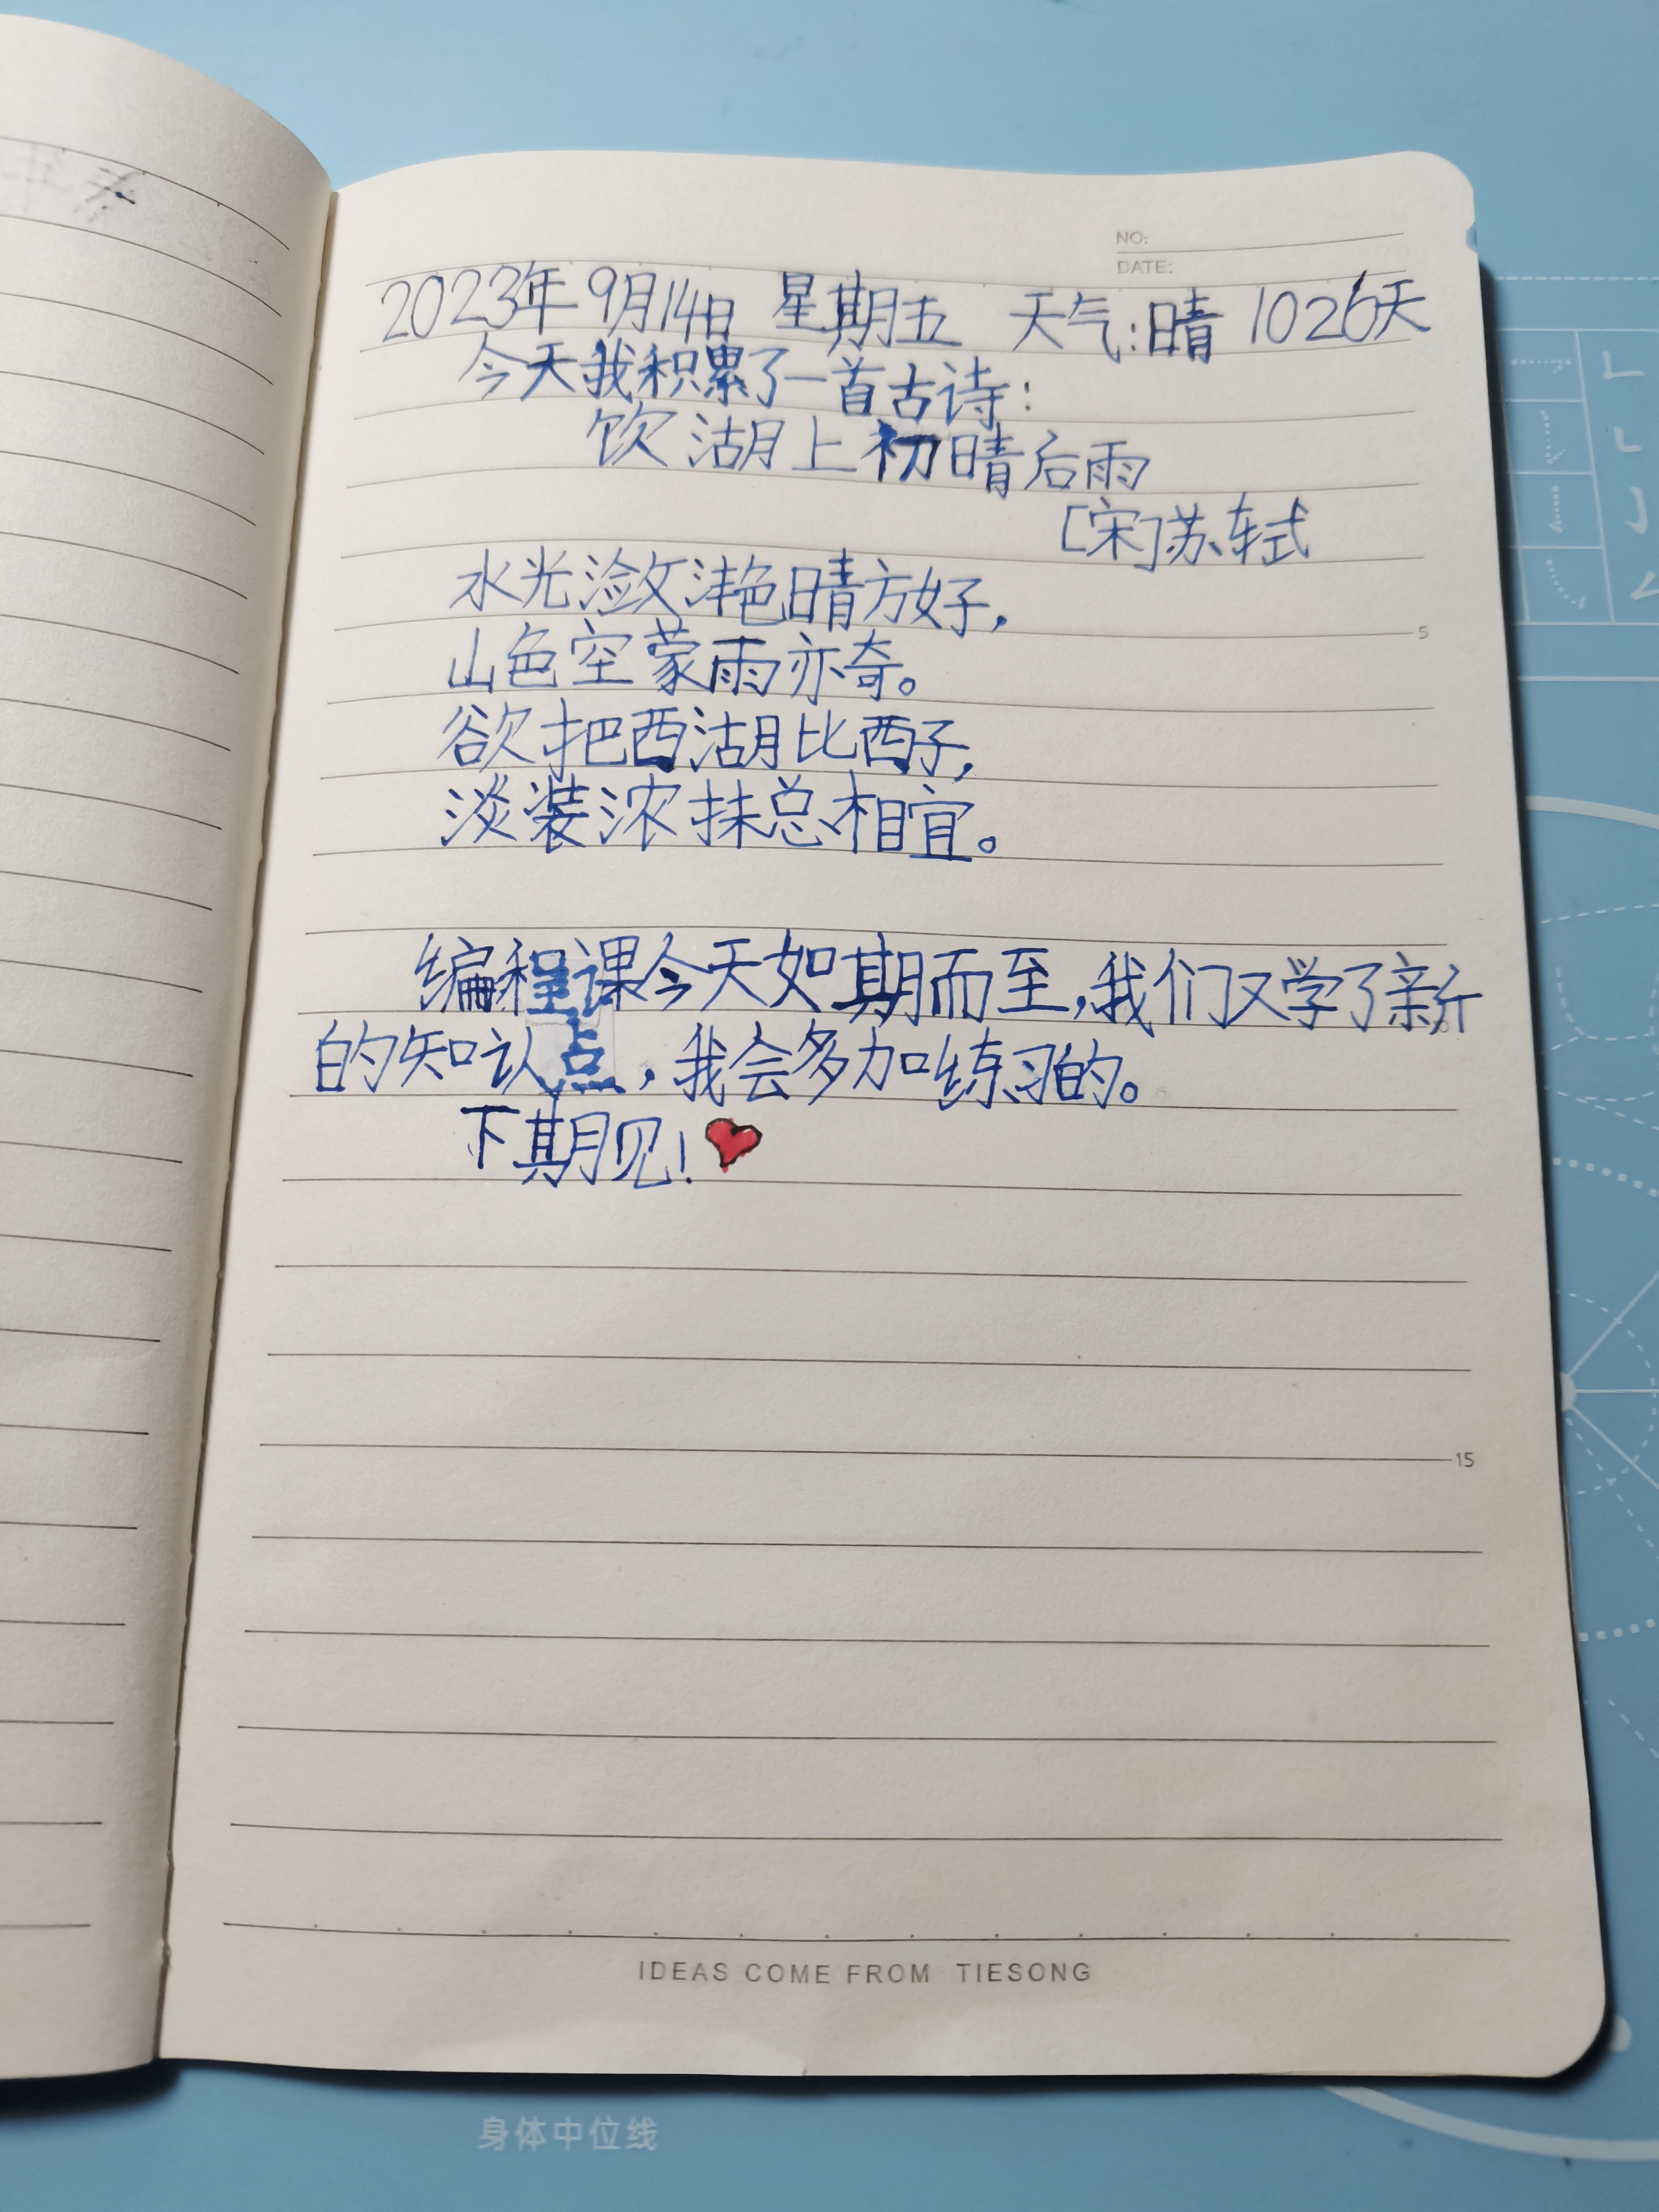 NO:
DATE:
2023年9月14日 星期五 天气:晴 1026天
今天我积累了一首古诗:
饮湖上初晴后雨
[宋]苏轼
水光潋滟晴方好,
山色空蒙雨亦奇。
欲把西湖比西子,
淡装浓抹总相宜。
5
编程课今天如期而至,我们又学了新
的知认点,我会多加练习的。
下期见!
15
IDEAS COME FROM TIESONG
身体中位线